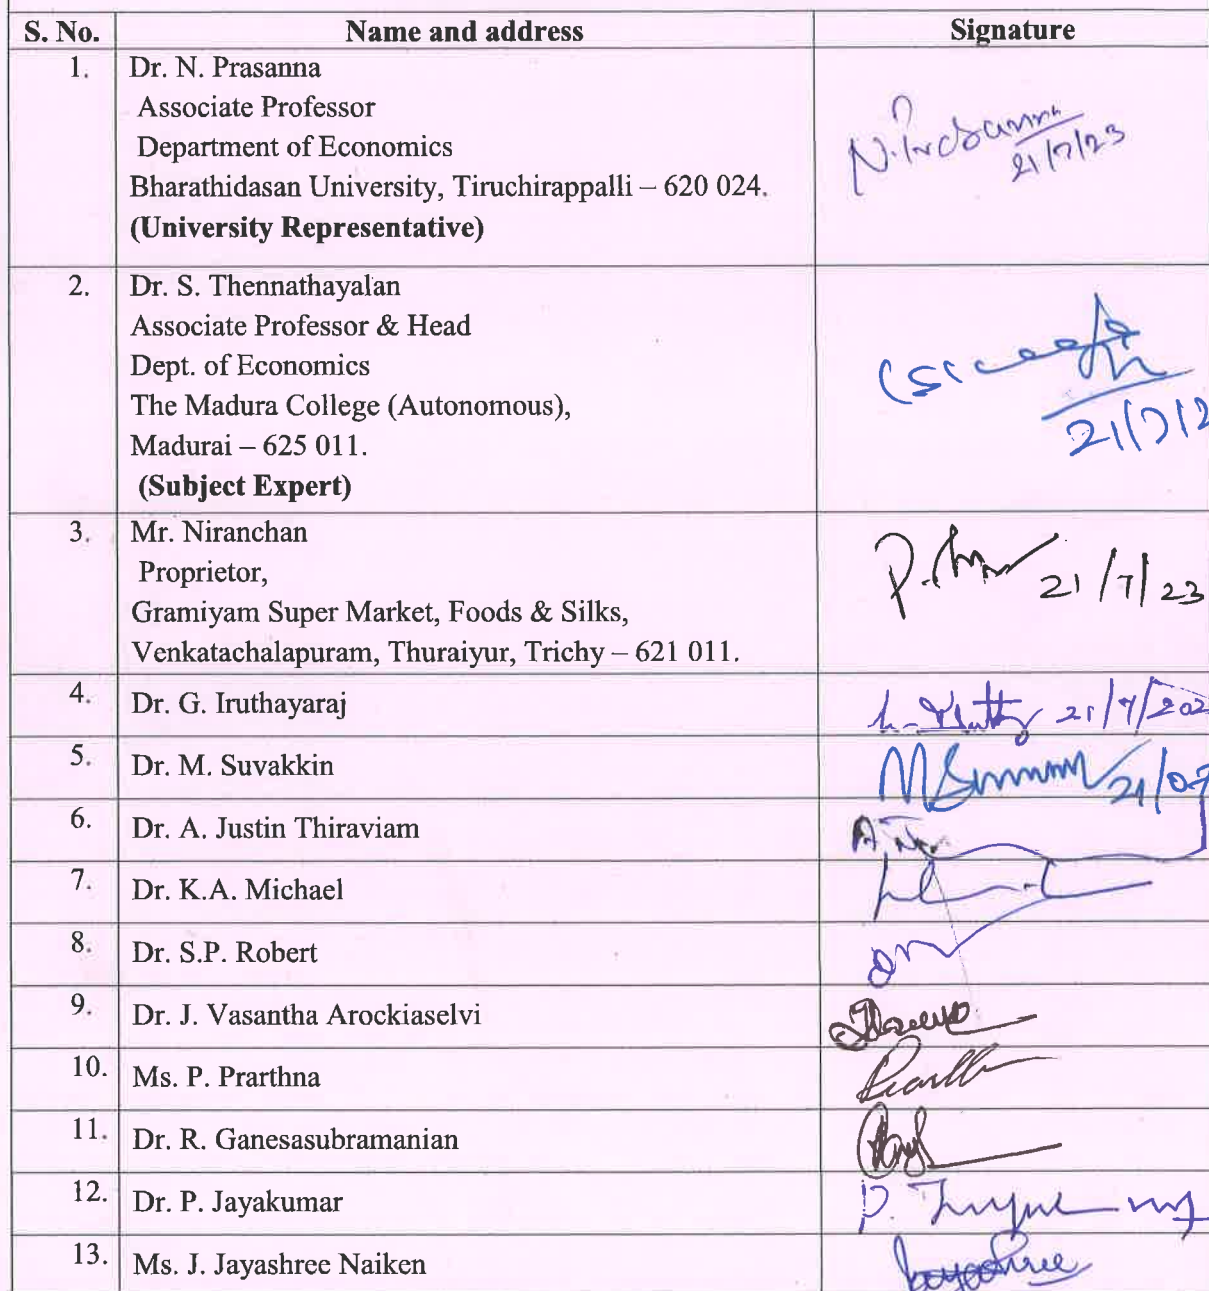 S. No. Name and address Signature
1. Dr. N. Prasanna
Associate Professor
Department of Economics
Bharathidasan University, Tiruchirappalli – 620 024.
(University Representative)
N. Prasanna
21/7/23
2. Dr. S. Thennathayalan
Associate Professor & Head
Dept. of Economics
The Madura College (Autonomous),
Madurai – 625 011.
(Subject Expert)
21/7/2
3. Mr. Niranchan
Proprietor,
Gramiyam Super Market, Foods & Silks,
Venkatachalapuram, Thuraiyur, Trichy – 621 011.
21/7/23
4. Dr. G. Iruthayaraj 21/7/202
5. Dr. M. Suvakkin 21/07
6. Dr. A. Justin Thiraviam
7. Dr. K.A. Michael
8. Dr. S.P. Robert
9. Dr. J. Vasantha Arockiaselvi
10. Ms. P. Prarthna
11. Dr. R. Ganesasubramanian
12. Dr. P. Jayakumar
13. Ms. J. Jayashree Naiken Jayashree